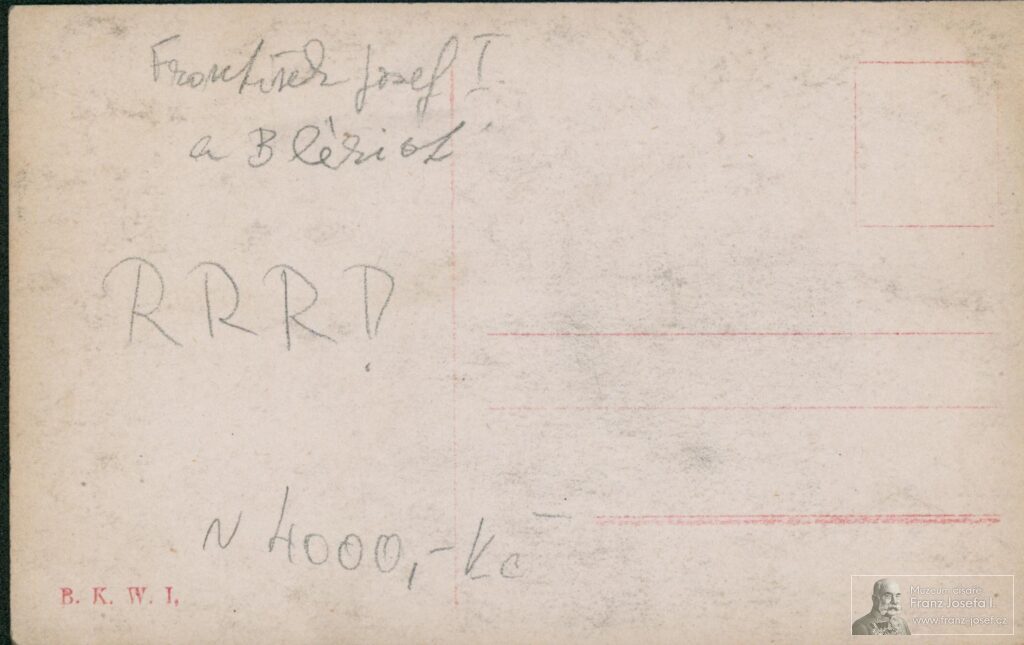 František Josef I.
a Blériot
RRR!
N 4000,- Kč
B. K. W. I,
Muzeum císaře
Franz Josefa I.
www.franz-josef.cz